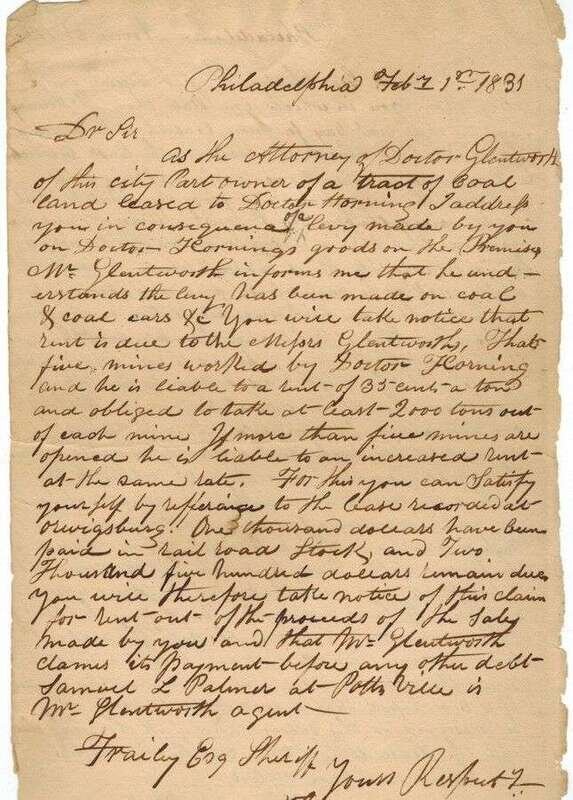 Philadelphia Feby 1st 1831
Dr Sir
As the Attorney of Doctor Glentworth
of this city Part owner of a tract of Coal
land leased to Doctor Horning I address
you in consequence of a levy made by you
on Doctor Hornings goods on the Premises
Mr Glentworth informs me that he und-
erstands the levy has been made on coal
& coal cars &c You will take notice that
rent is due to the Messrs Glentworth, That
five mines worked by Doctor Horning
and he is liable to a rent of 35 cents a ton
and obliged to take at least 2000 tons out
of each mine If more than five mines are
opened he is liable to an increased rent
at the same rate. For this you can Satisfy
yourself by reference to the lease recorded at
orwigsburg. One thousand dollars have been
paid in rail road Stock, and Two
Thousand five hundred dollars remain due,
you will therefore take notice of this claim
for rent out of the proceeds of the Sales
made by you and that Mr Glentworth
clames its payment before any other debt
Samuel L Palmer at Potts Ville is
Mr Glentworth agent
Frailey Esq Sheriff
Yours Respecty